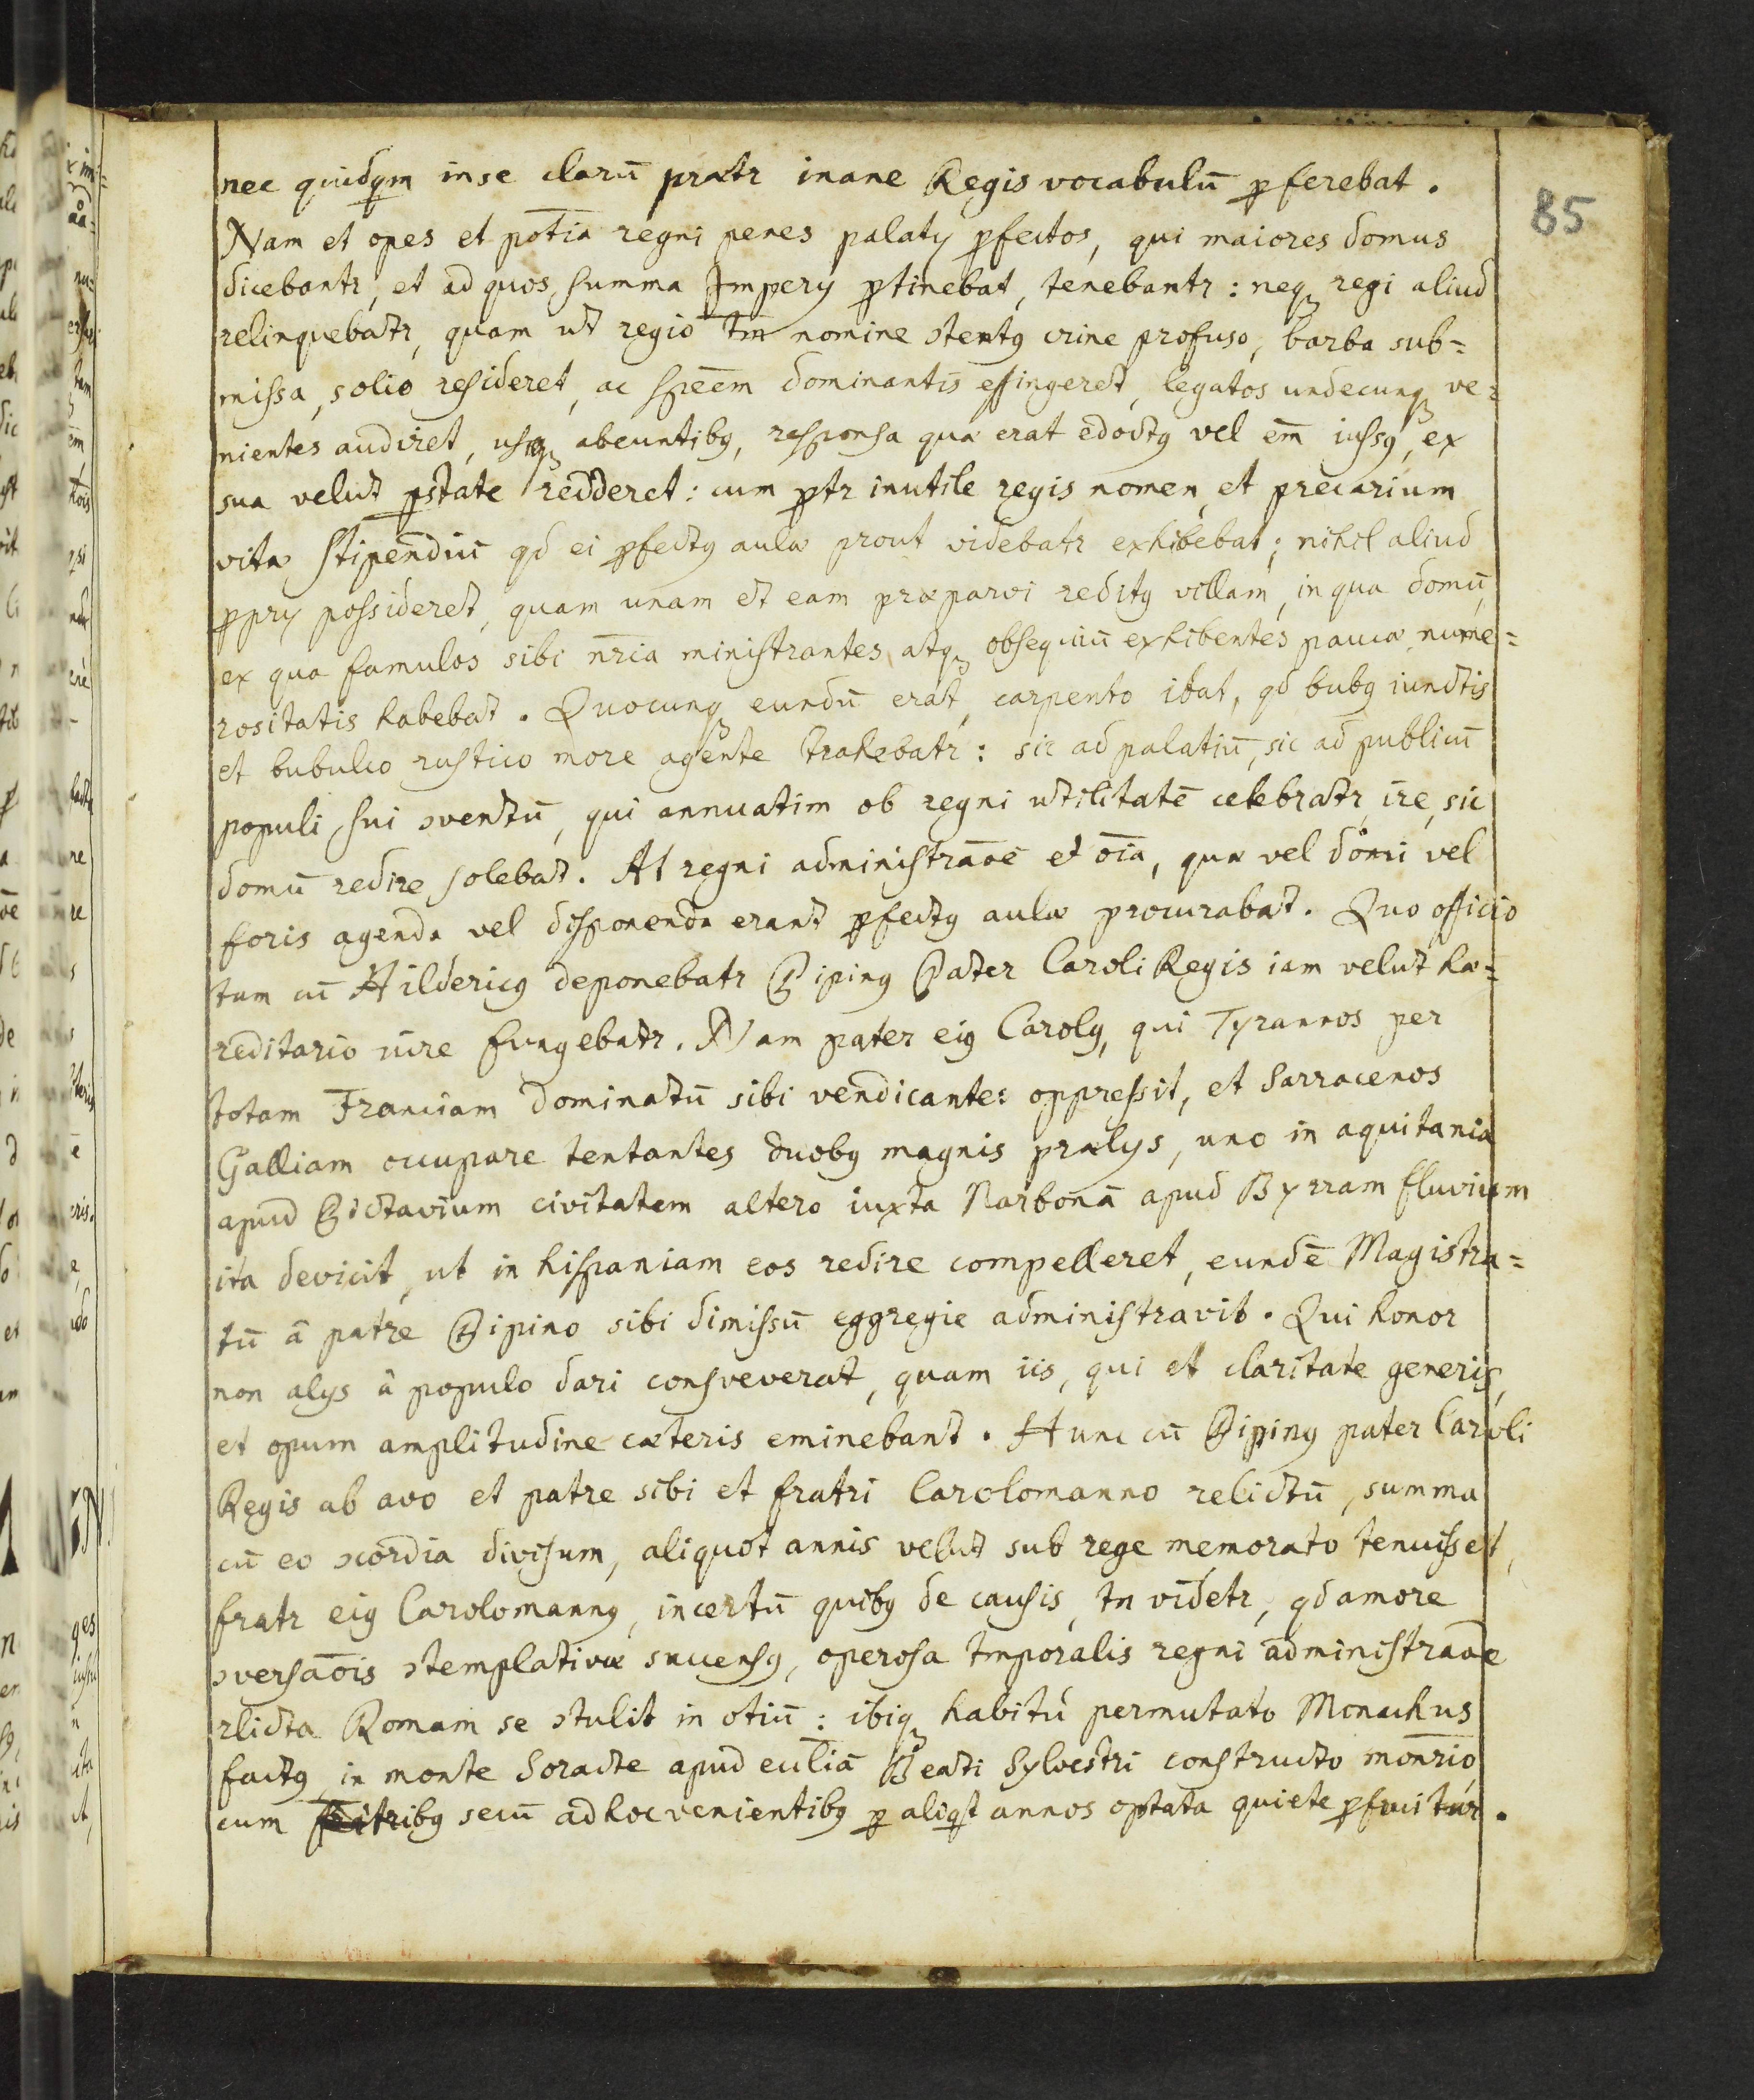 nec quidqm inse clarū prætr inane Regis vocabulū pferebat.
85
Nam et opes et potīa regni penes palaty pfectos, qui maiores domus
dicebantr, et ad quos summa Impery ptinebat, tenebantr: neqꝫ regi aliud
relinquebatr, quam ut regio tm̄ nomine ɔtentꝰ crine profuso, barba sub=
missa, solio resideret, ac spēem dominantis effingeret, legatos undecunqꝫ ve=
nientes audiret, abeuntibꝰ, responsa quæ erat edoctꝰ vel em̄ iussꝰ, ex
sua velut pstate redderet: cum ptr inutile regis nomen, et precarium
vitæ stipendiū qd ei pfectꝰ aulæ prout videbatr exhibebat; nihil aliud
ppry possideret, quam unam et eam præparvi reditꝰ villam, in qua domū,
ex qua famulos sibi nr̄ia ministrantes, atqꝫ obsequiū exhibentes paucæ nume=
rositatis habebat. Quocunqꝫ eundū erat, carpento ibat, qd bubꝰ iunctis
et bubulco rustico more agente trahebatr: sic ad palatiū, sic ad publicū
populi sui ɔventū, qui annuatim ob regni utilitatē celebratr, ire, sic
domū redire solebat. At regni administrāoē et oīa, quæ vel domi vel
foris agenda vel disponenda erant pfectꝰ aulæ procurabat. Quo officio
tum cū Hildericꝰ deponebatr Pipinꝰ Pater Caroli Regis iam velut hæ=
reditario iure fungebatr. Nam pater eiꝰ Carolꝰ, qui Tyrannos per
totam Franciam dominatū sibi vendicantes oppressit, et Sarracenos
Galliam occupare tentantes duobꝰ magnis prælys, uno in aquitania
apud Pictavium civitatem altero iuxta Narbonā apud Byrram fluvium
ita devicit, ut in hispaniam eos redire compelleret, eundē Magistra=
tū â patre Pipino sibi dimissū eggregie administravit. Qui honor
non alys â populo dari consveverat, quam iis, qui et claritate generis,
et opum amplitudine cæteris eminebant. Hunc cū Pipinꝰ pater Caroli
Regis ab avo et patre sibi et fratri Carolomanno relictū, summa
cū eo ɔcordia divisum, aliquot annis velut sub rege memorato tenuisset,
fratr eiꝰ Carolomannꝰ, incertū quibꝰ de causis, tn vīdetr, qd amore
ɔversāois ɔtemplativæ succensꝰ, operosa tmporalis regni administrāoe
rlicta Romam se ɔtulit in otiū: ibiqꝫ habitú permutato Monachus
factꝰ in monte Soracte apud ecclīā Beati Sylvestri constructo monr̄io
cum secū ad hoc venientibꝰ p aliqt annos optata quiete pfruitur.